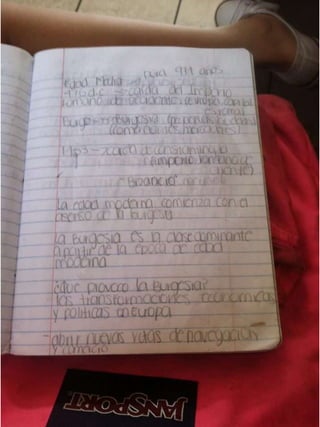 Edad Media dura 977 años
476 d.c → caida del Imperio
romano de occidente (europa capital
es roma)
Burgo → Burgesia
(comerciantes, mercaderes)
1453 → caida de constantinopla
(imperio romano de
oriente)
"Bizancio"
La edad moderna comienza con el
asenso de la burgesia
La Burgesia es la clase dominante
a partir de la epoca de edad
moderna
¿Que provoco la Burgesia?
las transformaciones economicas
y politicas en europa
- abrir nuevas rutas de navegacion
y comercio
JANSPORT